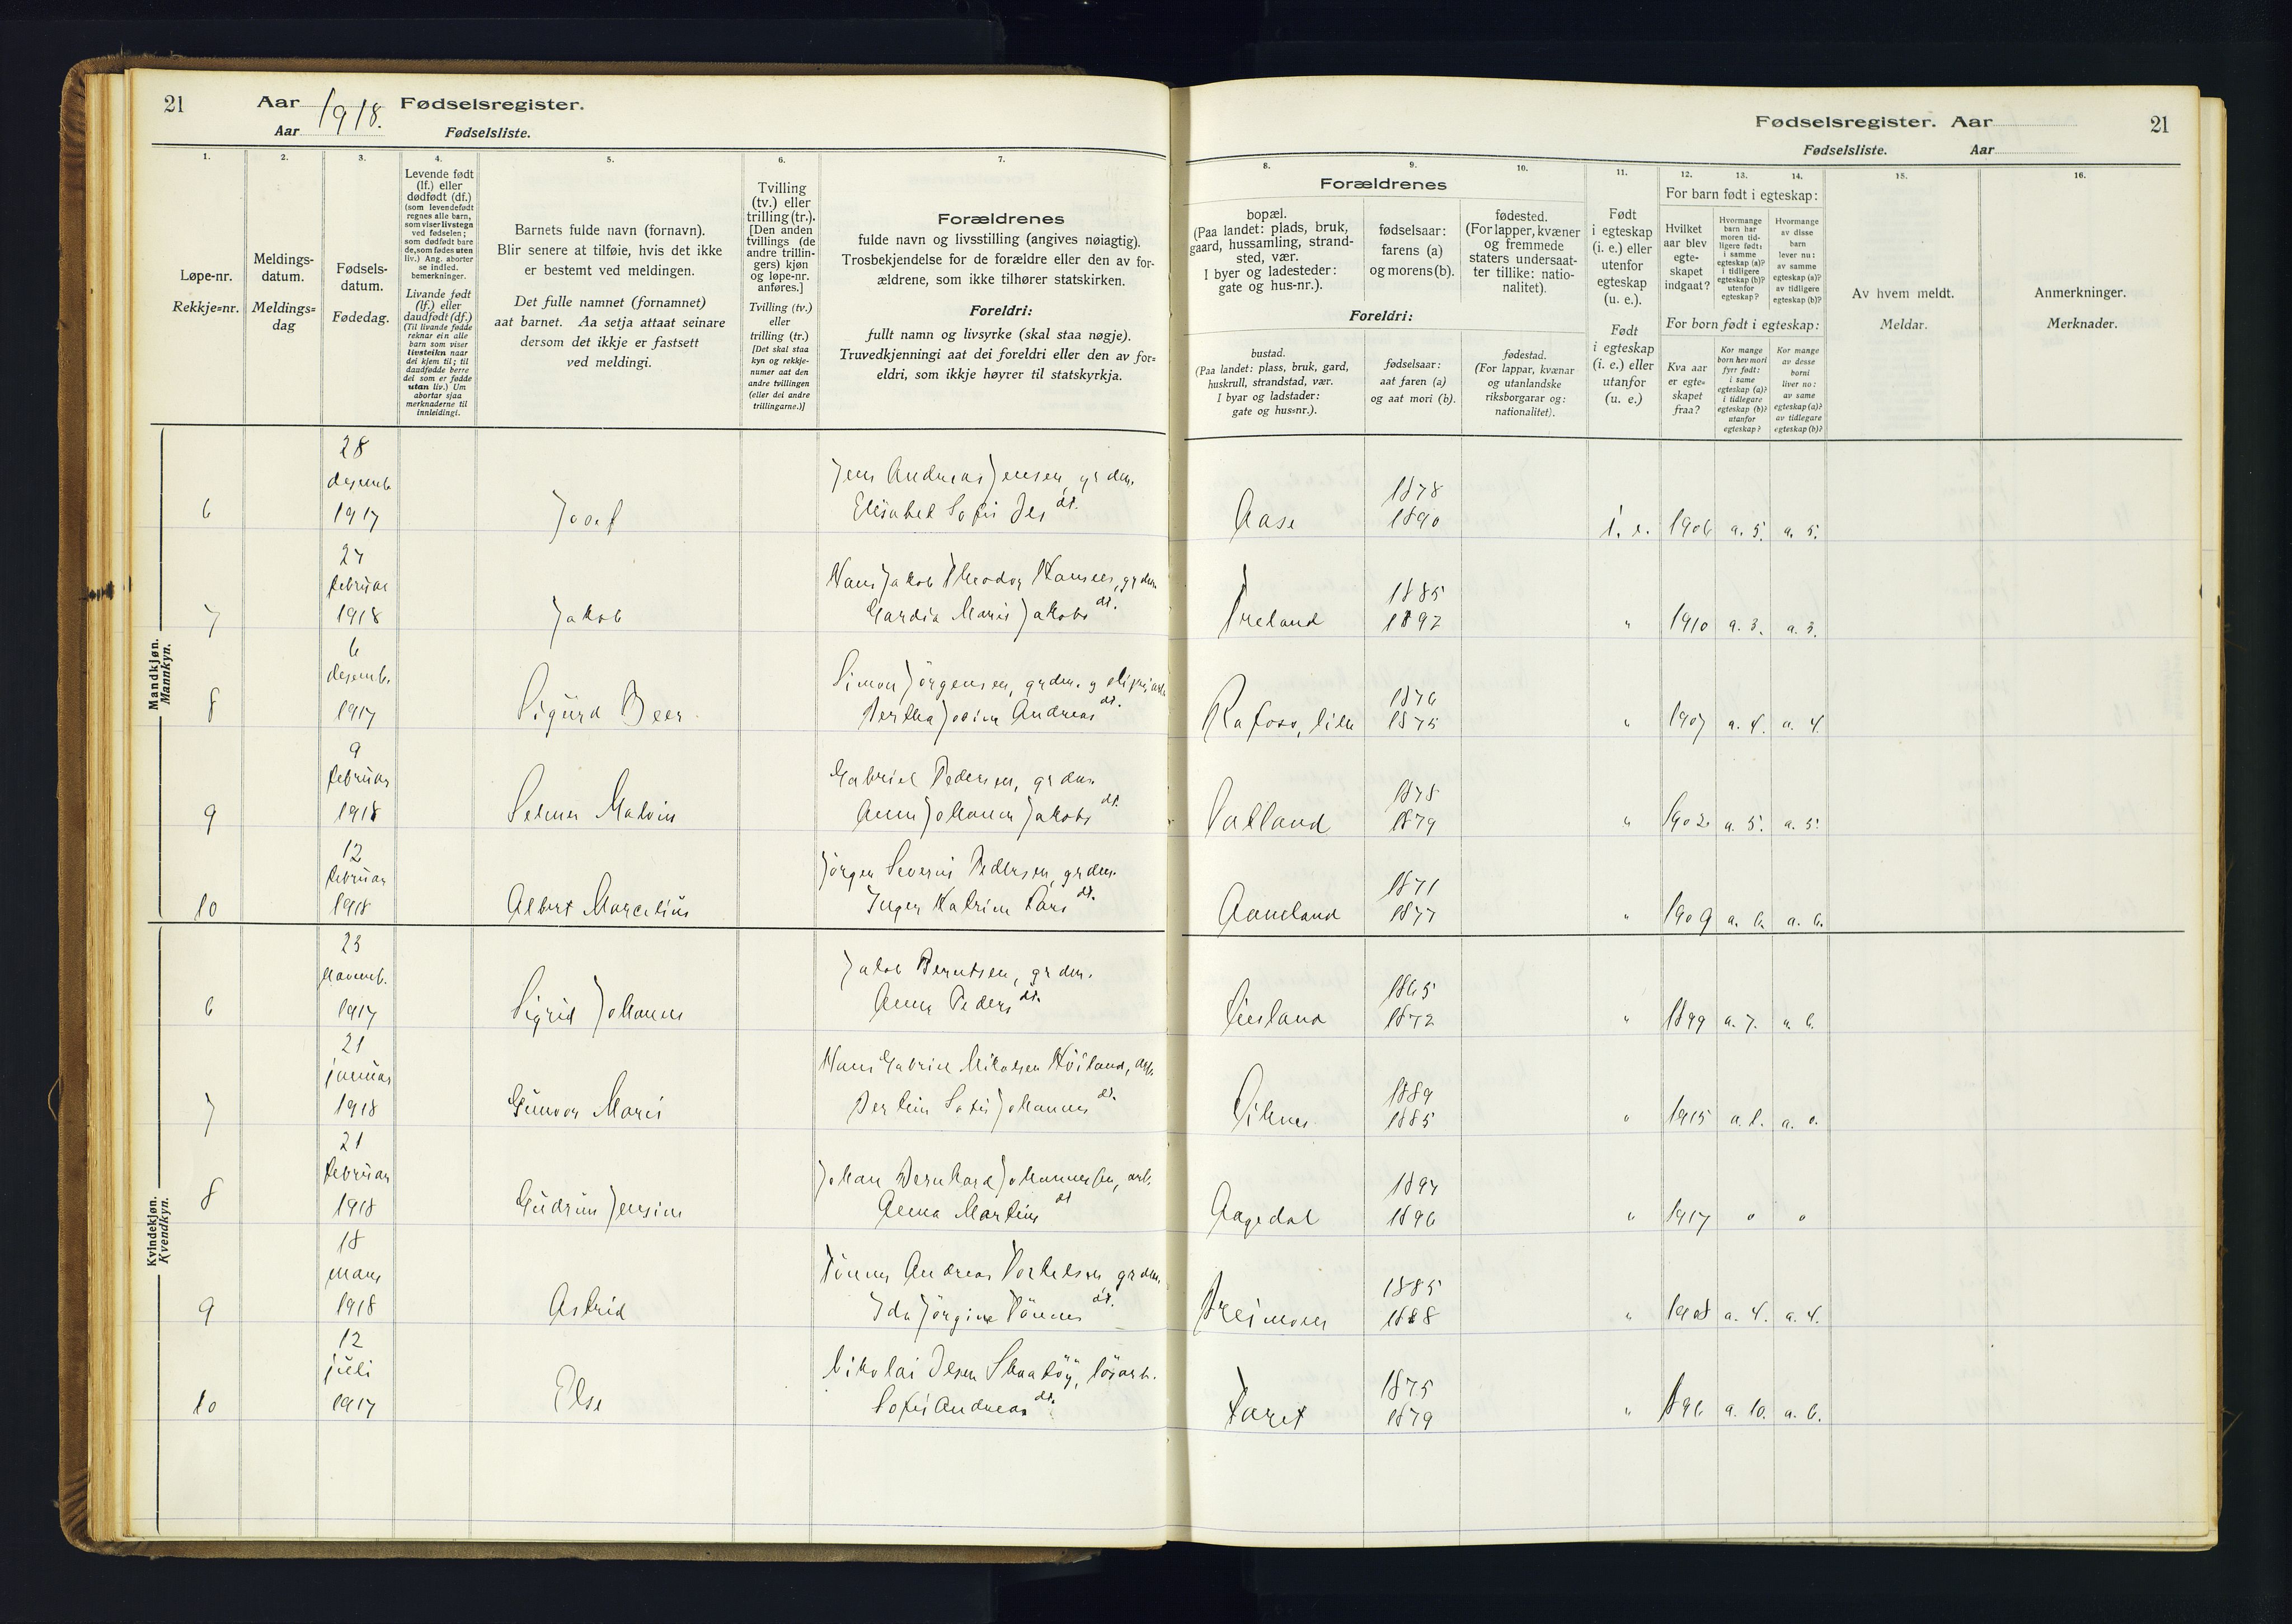 21 Aar 1918. Fødselsregister.
Aar Fødselsliste.
Fødselsregister. Aar 21
Fødselsliste. Aar
1. 2. 3. 4. 5. 6. 7.
Løpe-nr.
Rekkje=nr.
Meldings-
datum.
Meldings=
dag
Fødsels-
datum.
Fødedag.
Levende født
(lf.) eller
dødfødt (df.)
(som levendefødt
regnes alle barn,
som viser livstegn
ved fødselen;
som dødfødt bare
de, som føden uten
liv.) Ang. aborter
se indled.
bemerkninger.
Livande født
(lf.) eller
daudfødt (df.)
(Til livande fødde
reknar ein alle
barn som viser
livsteikn naar
dei kjem til; til
daudfødde berre
dei som er fødde
utan liv.) Um
abortar sjaa
merknaderne til
innleidingi.
Barnets fulde navn (fornavn).
Blir senere at tilføie, hvis det ikke
er bestemt ved meldingen.
Det fulle namnet (fornamnet)
aat barnet. Aa setja attaat seinare
dersom det ikkje er fastsett
ved meldingi.
Tvilling
(tv.) eller
trilling (tr.).
[Den anden
tvillings (de
andre trillin-
gers) kjøn
og løpe-nr.
anføres.]
Tvilling (tv.)
eller
trilling (tr.)
[Det skal staa
kyn og rekkje-
numer aat den
andre tvillingen
(eller dei andre
trillingarne.)]
Forældrenes
fulde navn og livsstilling (angives nøiagtig).
Trosbekjendelse for de forældre eller den av for-
ældrene, som ikke tilhører statskirken.
Foreldri:
fullt namn og livsyrke (skal staa nøgje).
Truvedkjenningi aat dei foreldri eller den av for=
eldri, som ikkje høyrer til statskyrkja.
8. 9. 10. 11. 12. 13. 14. 15. 16.
Forældrenes
bopæl.
(Paa landet: plads, bruk,
gaard, hussamling, strand-
sted, vær.
I byer og ladesteder:
gate og hus-nr.).
fødselsaar:
farens (a)
og morens (b).
fødested.
(For lapper, kvæner
og fremmede
staters undersaat-
ter tillike: natio-
nalitet).
Foreldri:
bustad.
(Paa landet: plass, bruk, gard,
huskrull, strandstad, vær.
I byar og ladstader:
gate og hus=nr.).
fødselsaar:
aat faren (a)
og aat mori (b).
fødestad.
(For lappar, kvænar
og utanlandske
riksborgarar og:
nationalitet).
Født
i egteskap
(i. e.) eller
utenfor
egteskap
(u. e.).
Født
i egteskap
(i. e.) eller
utanfor
(u. e.)
For barn født i egteskap:
Hvilket
aar blev
egte-
skapet
indgaat?
Hvormange
barn har
moren tid-
ligere født:
i samme
egteskap (a)?
i tidligere
egteskap (b)?
utenfor
egteskap?
Hvormange
av disse
barn
lever nu:
av samme
egteskap (a)?
av tidligere
egteskap (b)?
For born født i egteskap:
Kva aar
er egte=
skapet
fraa?
Kor mange
born hev mori
fyrr født:
i same
egteskap (a)?
i tidlegare
egteskap (b)?
utanfor
egteskap?
Kor mange
av desse
borni
liver no:
av same
egteskap (a)?
av tidlegare
egteskap (b)?
Av hvem meldt.
Meldar.
Anmerkninger.
Merknader.
Mandkjøn.
Mannkyn.
28
desemb.
6 1917 Josef
Jens Andreas Jensen, grdm.
Elisabet Sofie Jens dt.
Aase 1878
1890 i. e. 1906 a. 5. a. 5.
27
februar
7 1918 Jakob
Hans Jakob Theodor Hansen, grdm.
Gardia Marie Jakobs dt.
Treland 1885
1892 " 1910 a. 3. a. 3.
6
desemb.
8 1917 Sigurd Beer
Simon Jörgensen, grdm. og
Bertha Josine Andreas dt.
Rafoss, lille 1876
1875 " 1907 a. 4. a. 4.
9
februar
9 1918 Selmer Malvin
Gabriel Pedersen, grdm.
Anne Johanne Jakobs dt.
Salland 1878
1879 " 1902 a. 5. a. 5.
12
februar
10 1918 Albert Marcelius
Jörgen Severin Pedersen, grdm.
Inger Katrine Lars dt.
Aamland 1871
1877 " 1909 a. 6. a. 6.
Kvindekjøn.
Kvendkyn.
23
novemb.
6 1917 Sigrid Johanne
Jakob Berntsen, grdm.
Anna Peders dt.
1865
1872 " 1899 a. 7. a. 6.
21
januar
7 1918 Gunvor Marie
Hans Gabriel Nikolsen Höiland, arb.
Bertine Sofie Johannes dt.
1889
1885 " 1915 a. 1. a. 0.
21
februar
8 1918 Gudrun Jensine
Johan Bernhard Johannessen, arb.
Anna Martins dt
Aagedal 1894
1896 " 1917 0 0
18
mars
9 1918 Astrid
Tönnes Andreas Torkelsen grdm.
Ida Jörgine Tönnes dt.
Treimoen 1885
1888 " 1908 a. 4. a. 4.
12
juli
10 1917 Else
Nikolai Olsen
Sofie Andreas dt.
1875
1879 " 1896 a. 10. a. 6.